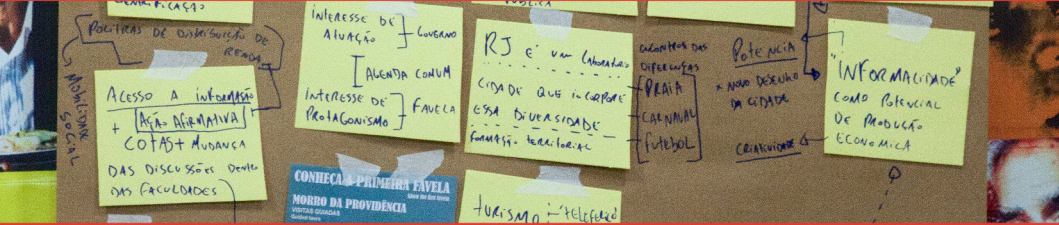 POLÍTICAS DE DISTRIBUIÇÃO DE
RENDA
MOBILIDADE
SOCIAL
ACESSO A INFORMAÇÃO
+ AÇÃO AFIRMATIVA
COTAS + MUDANÇA
DAS DISCUSSÕES DENTRO
DAS FACULDADES
INTERESSE DE
ATUAÇÃO
GOVERNO
AGENDA COMUM
INTERESSE DE
PROTAGONISMO
FAVELA
CONHEÇA A PRIMEIRA FAVELA
MORRO DA PROVIDÊNCIA
VISITAS GUIADAS
Guided tours
RJ É UM LABORATÓRIO
CIDADE QUE INCORPORE
ESSA DIVERSIDADE
FORMAÇÃO TERRITORIAL
ENCONTROS DAS
DIFERENÇAS
PRAIA
CARNAVAL
FUTEBOL
TURISMO
TELEFÉRICO
POTENCIA
× NOVO DESENHO
DA CIDADE
CRIATIVIDADE
"INFORMALIDADE"
COMO POTENCIAL
DE PRODUÇÃO
ECONOMICA